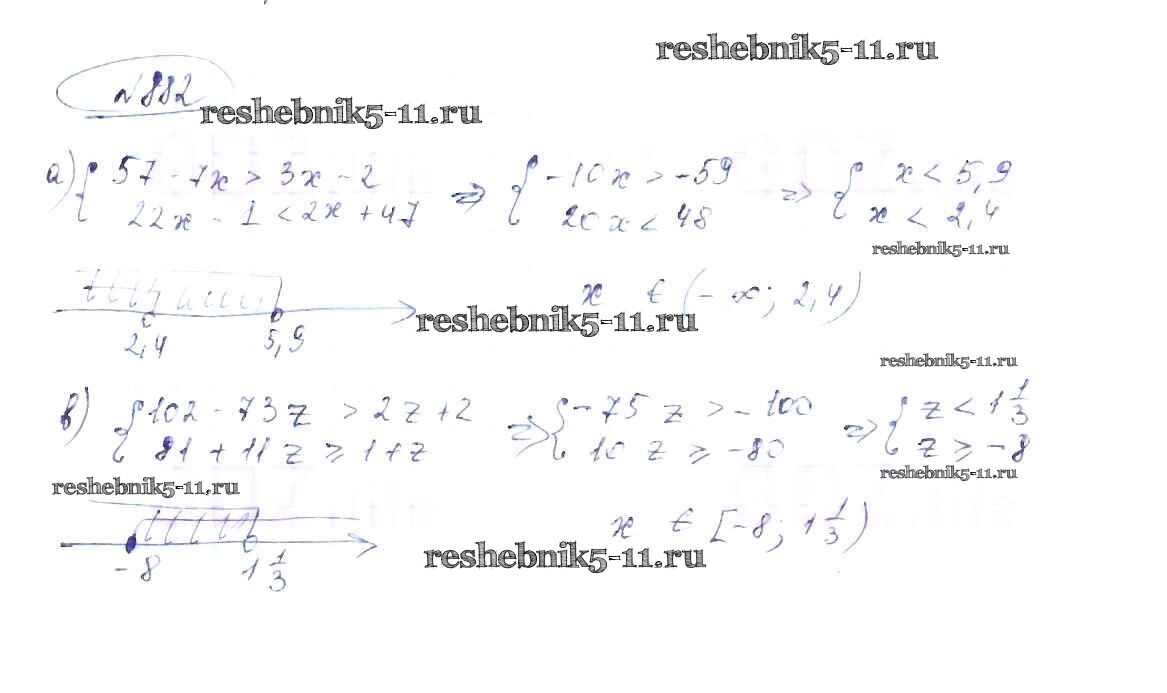 reshebnik5-11.ru
№882
reshebnik5-11.ru
а) { 57 - 7x > 3x - 2 => { -10x > -59 => { x < 5,9
22x - 1 < 2x + 47 20x < 48 x < 2,4
reshebnik5-11.ru
x ∈ (-∞; 2,4)
reshebnik5-11.ru
2,4 5,9
reshebnik5-11.ru
в) { 102 - 73z > 2z + 2 => { -75z > -100 => { z < 1 1/3
81 + 11z ≥ 1 + z 10z ≥ -80 z ≥ -8
reshebnik5-11.ru
reshebnik5-11.ru
x ∈ [-8; 1 1/3)
reshebnik5-11.ru
-8 1 1/3